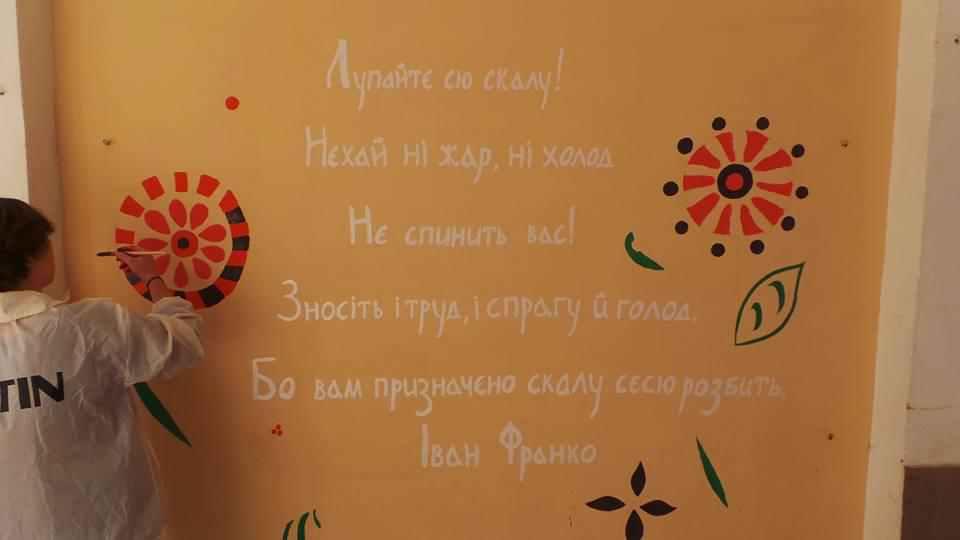 Лупайте сю скалу!
Нехай ні жар, ні холод
Не спинить вас!
Зносіть і труд, і спрагу й голод,
Бо вам призначено скалу сесю розбить.
Іван Франко
TIN